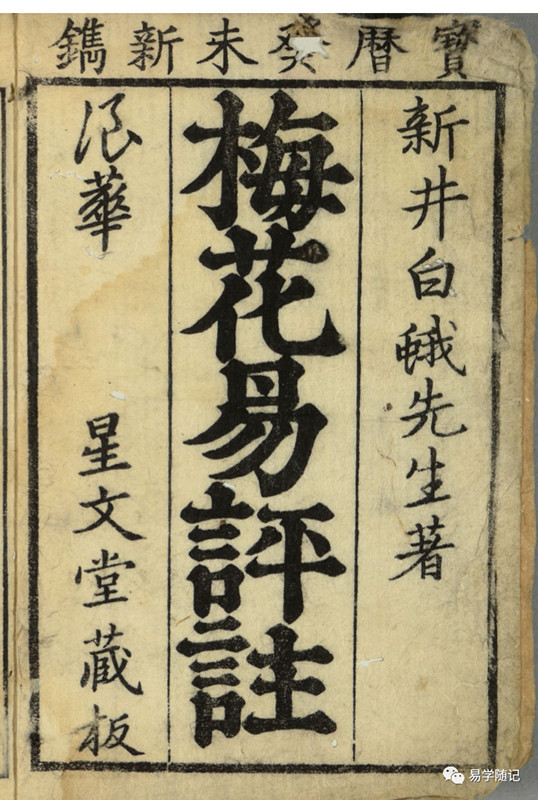 寶曆癸未新鐫
新井白蛾先生著
梅花易評註
浪華 星文堂藏板
易学随记